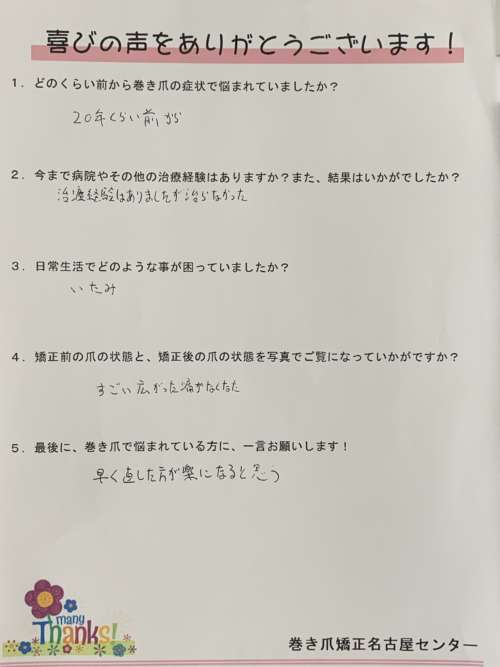 喜びの声をありがとうございます！
１．どのくらい前から巻き爪の症状で悩まれていましたか？
20年くらい前から
２．今まで病院やその他の治療経験はありますか？また、結果はいかがでしたか？
治療経験はありましたが治らなかった
３．日常生活でどのような事が困っていましたか？
いたみ
４．矯正前の爪の状態と、矯正後の爪の状態を写真でご覧になっていかがですか？
すごい広がった痛がなくなた
５．最後に、巻き爪で悩まれている方に、一言お願いします！
早く直した方が楽になると思う
many
Thanks!
巻き爪矯正名古屋センター